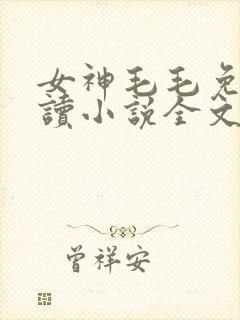 女神毛毛免
讀小説全文
曾祥安